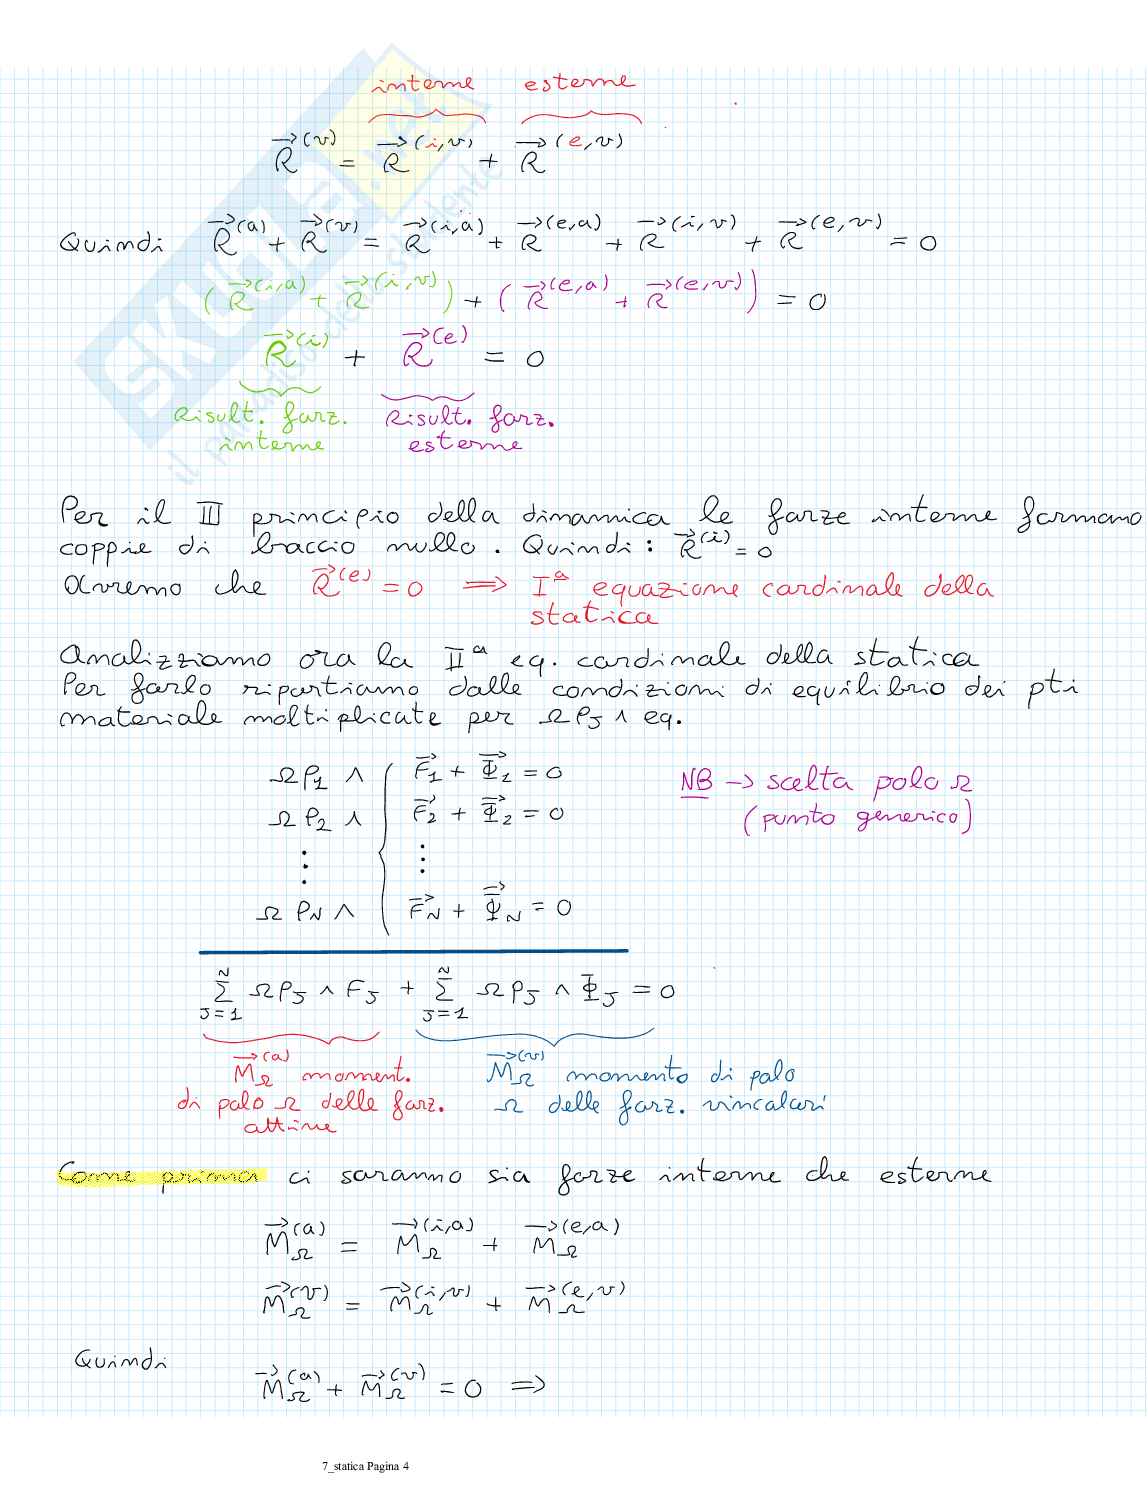 interne esterne
R⃗^(v) = R⃗^(i,v) + R⃗^(e,v)
Quindi R⃗^(a) + R⃗^(v) = R⃗^(i,a) + R⃗^(e,a) + R⃗^(i,v) + R⃗^(e,v) = 0
(R⃗^(i,a) + R⃗^(i,v)) + (R⃗^(e,a) + R⃗^(e,v)) = 0
R⃗^(i) + R⃗^(e) = 0
Risult. forz. Risult. forz.
interne esterne
Per il III principio della dinamica le forze interne formano
coppie di braccio nullo. Quindi: R⃗^(i) = 0
Avremo che R⃗^(e) = 0 ⇒ I^a equazione cardinale della
statica
Analizziamo ora la II^a eq. cardinale della statica
Per farlo ripartiamo dalle condizioni di equilibrio dei pti
materiale moltiplicate per ΩPJ ∧ eq.
ΩP1 ∧ { F⃗1 + Φ⃗1 = 0
ΩP2 ∧ F⃗2 + Φ⃗2 = 0
NB → scelta polo Ω
(punto generico)
⋮ ⋮
ΩPN ∧ F⃗N + Φ⃗N = 0
∑_{J=1}^{N} ΩPJ ∧ FJ + ∑_{J=1}^{N} ΩPJ ∧ Φ̄J = 0
M⃗Ω^(a) moment. M⃗Ω^(v) momento di polo
di polo Ω delle forz. Ω delle forz. vincolari
attive
Come prima ci saranno sia forze interne che esterne
M⃗Ω^(a) = M⃗Ω^(i,a) + M⃗Ω^(e,a)
M⃗Ω^(v) = M⃗Ω^(i,v) + M⃗Ω^(e,v)
Quindi
M⃗Ω^(a) + M⃗Ω^(v) = 0 ⇒
7_statica Pagina 4